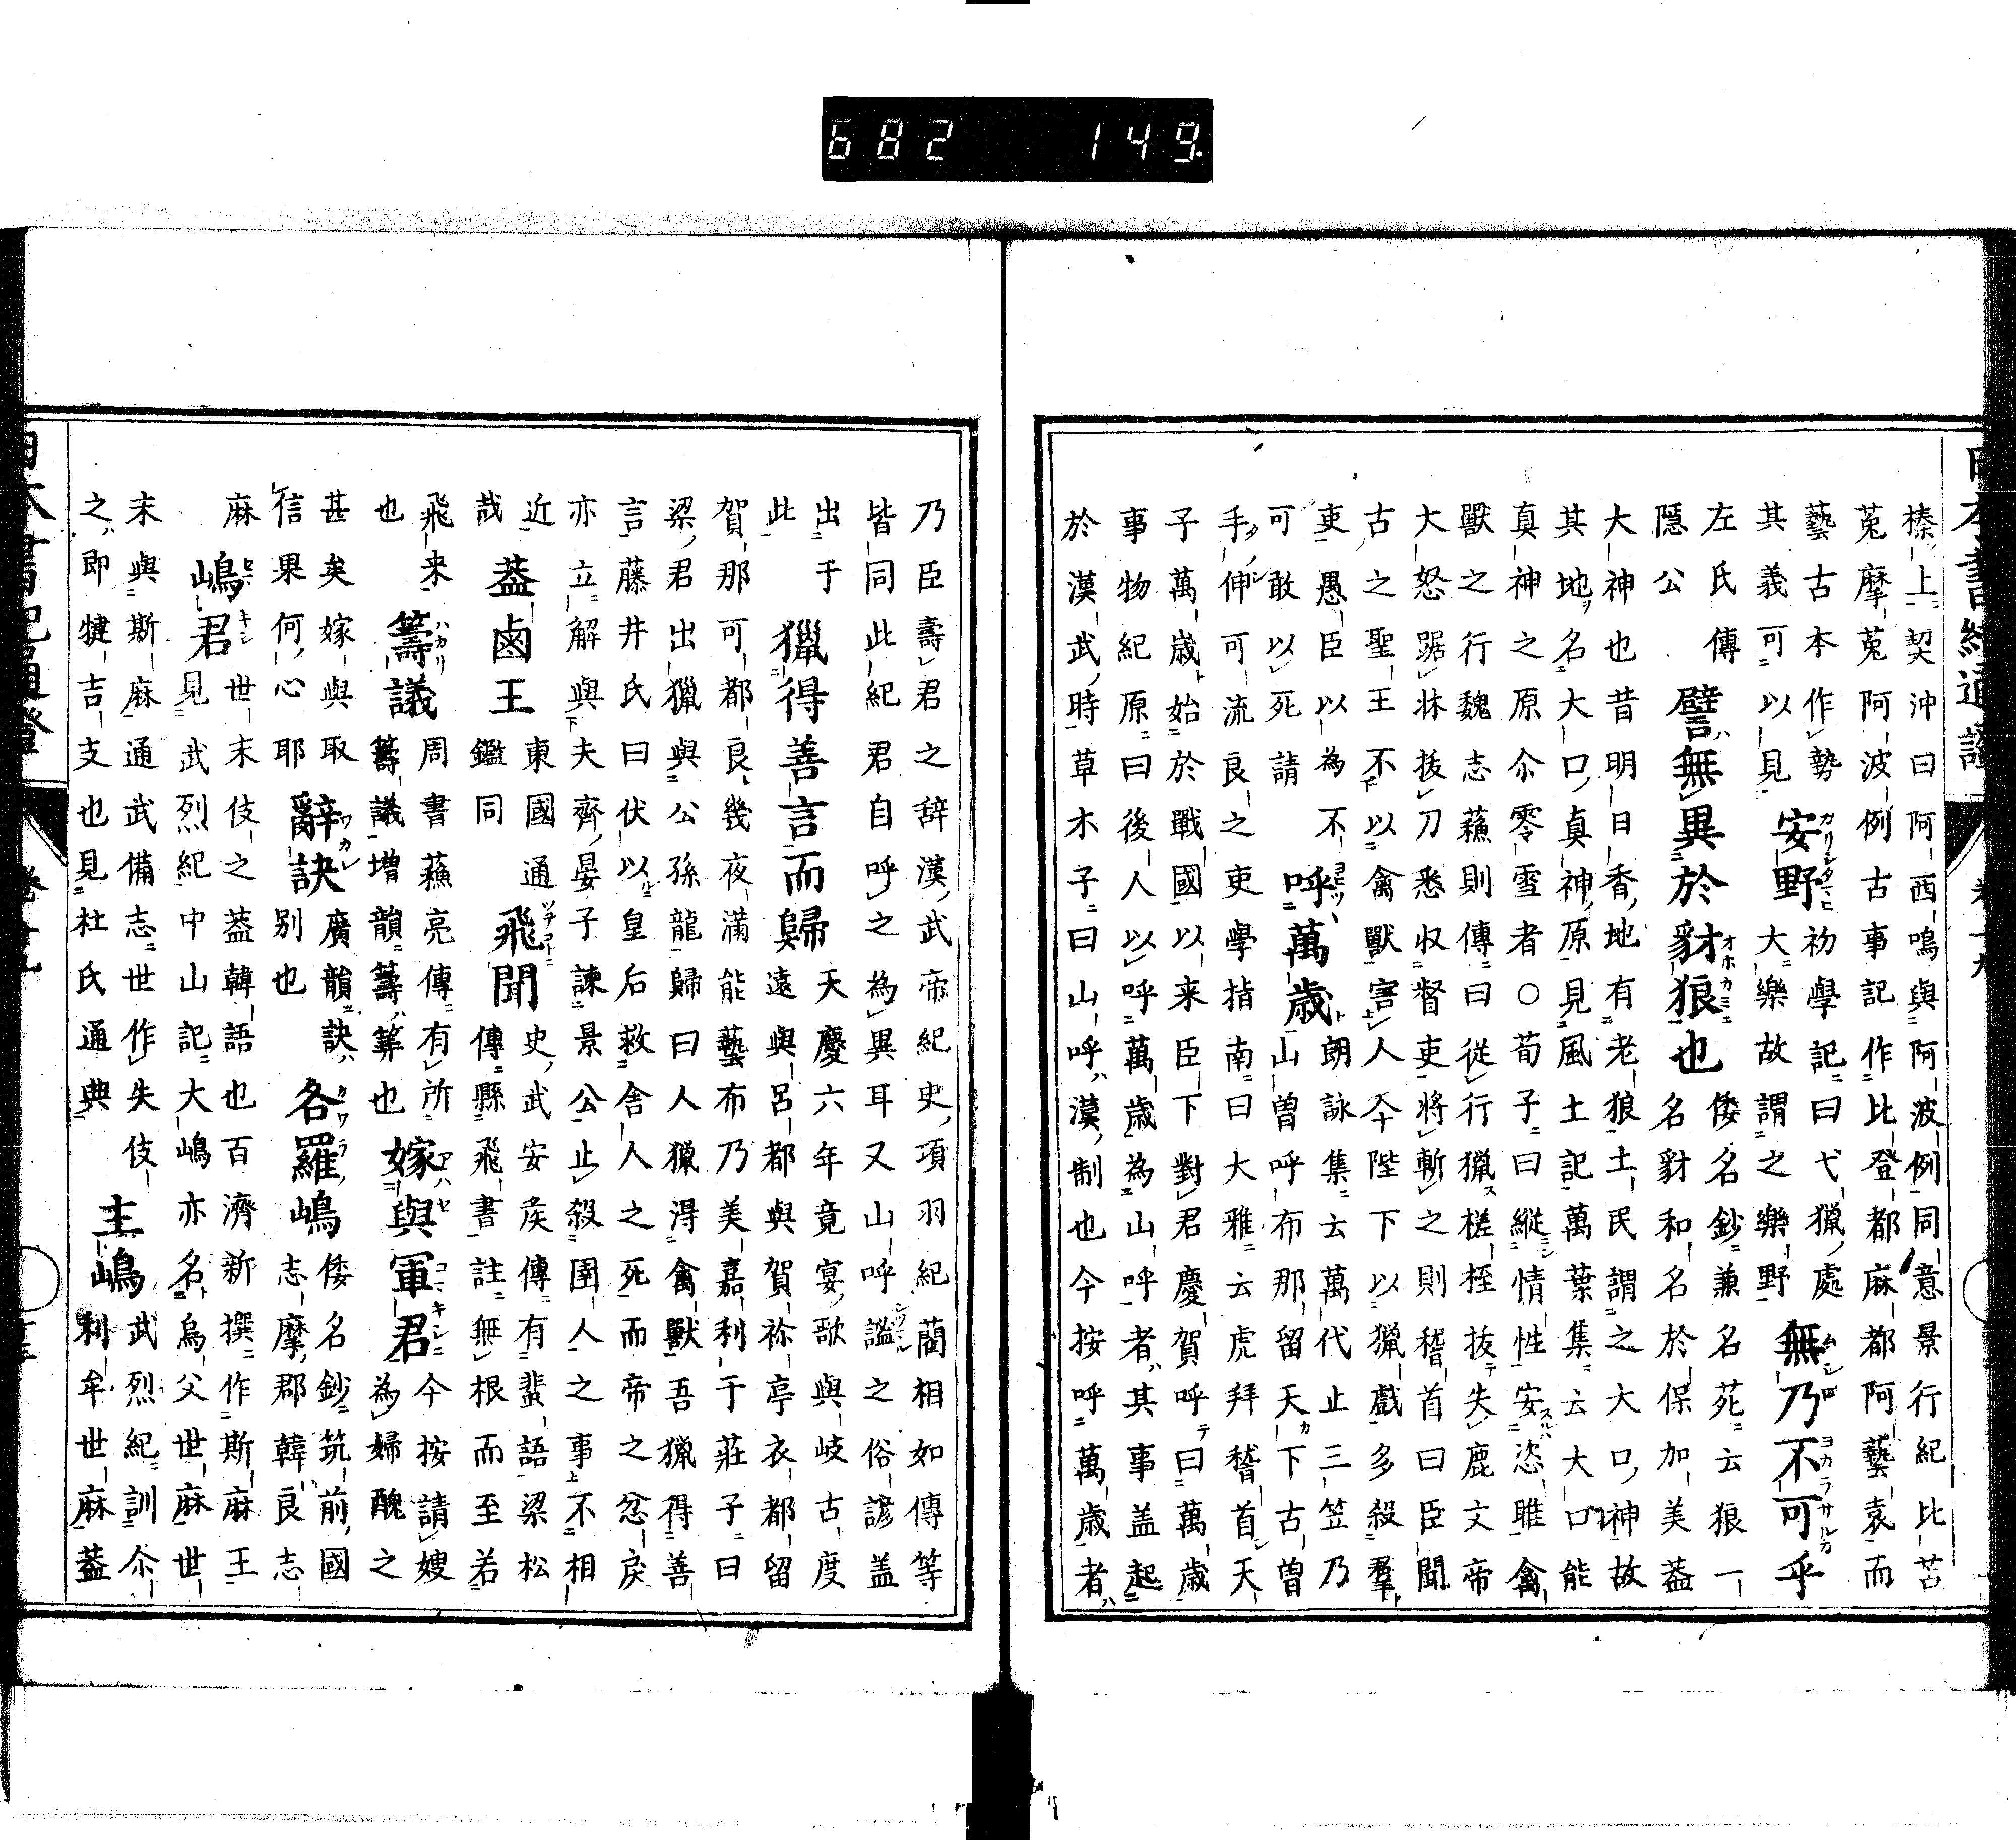 682 149
榛上契沖曰阿西鳴與阿波例同意景行紀比苫
菟摩菟阿波例古事記作比登都麻都阿藝袁而
藝古本作勢 安野初學記曰弋獵處
其義可以見 大樂故謂之樂野 無乃不可乎
左氏傳
隱公 譬無異於豺狼也 倭名鈔兼名苑云狼一
名豺和名於保加美葢
大神也昔明日香地有老狼土民謂之大口神故
其地名大口真神原見風土記萬葉集云大口能
真神之原尒零雪者○荀子曰縦情性安恣睢禽
獸之行魏志蘓則傳曰從行獵槎桎拔失鹿文帝
大怒踞牀拔刀悉收督吏將斬之則稽首曰臣聞
古之聖王不以禽獸害人今陛下以獵戲多殺羣
吏愚臣以為不
可敢以死請 呼萬歳 朗詠集云萬代止三笠乃
山曽呼布那留天下古曽
手伸可流良之吏學指南曰大雅云虎拜稽首天
子萬歳始於戰國以来臣下對君慶賀呼曰萬歳
事物紀原曰後人以呼萬歳為山呼者其事盖起
於漢武時草木子曰山呼漢制也今按呼萬歳者
乃臣壽君之辞漢武帝紀史項羽紀藺相如傳等
皆同此紀君自呼之為異耳又山呼謐之俗諺盖
出于
此 獵得善言而歸 天慶六年竟宴歌與岐古度
遠與呂都與賀祢亭衣都留
賀那可都良幾夜滿能藝布乃美嘉利于莊子曰
梁君出獵與公孫龍歸曰人獵得禽獸吾獵得善
言藤井氏曰伏以皇后救舎人之死而帝之忿戾
亦立解與夫齊晏子諫景公止殺圉人之事不相
近
哉 葢鹵王 東國通
鑑同 飛聞 史武安矦傳有蜚語梁松
傳縣飛書註無根而至若
飛来
也 籌議 周書蘓亮傳有所
籌議増韻籌筭也 嫁與軍君 今按請嫂
為婦醜之
甚矣嫁與取
信果何心耶 辭訣 廣韻訣
别也 各羅嶋 倭名鈔筑前國
志摩郡韓良志
麻 嶋君 世末伎之葢韓語也百濟新撰作斯麻王
見武烈紀中山記大嶋亦名烏父世麻世
末與斯麻通武備志世作失伎 主嶋 武烈紀訓尒
利牟世麻葢
之即犍吉支也見杜氏通典